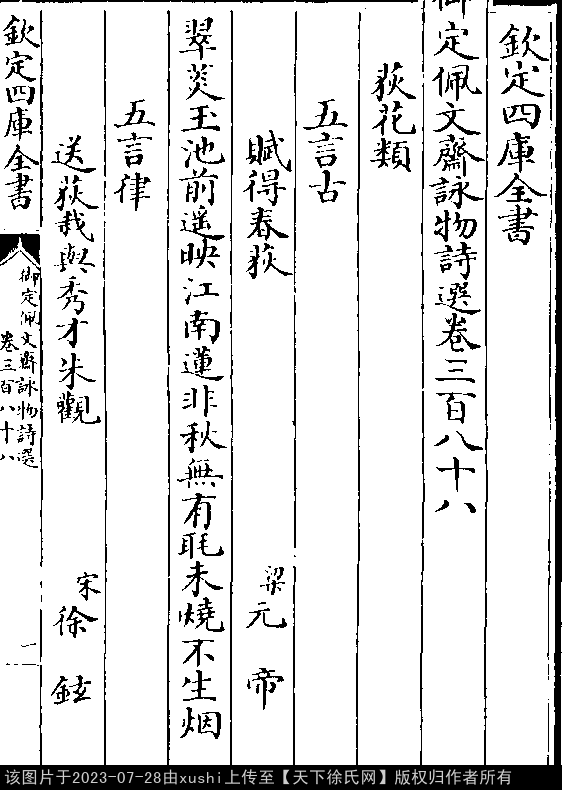 欽定四庫全書
御定佩文齋詠物詩選卷三百八十八
荻花類
五言古
賦得春荻
梁元帝
翠葓玉池前遥映江南蓮非秋無有眊未燒不生烟
五言律
送荻栽與秀才朱觀
宋徐鉉
欽定四庫全書
御定佩文齋詠物詩選
卷三百八十八
一
该图片于2023-07-28由xushi上传至【天下徐氏网】版权归作者所有